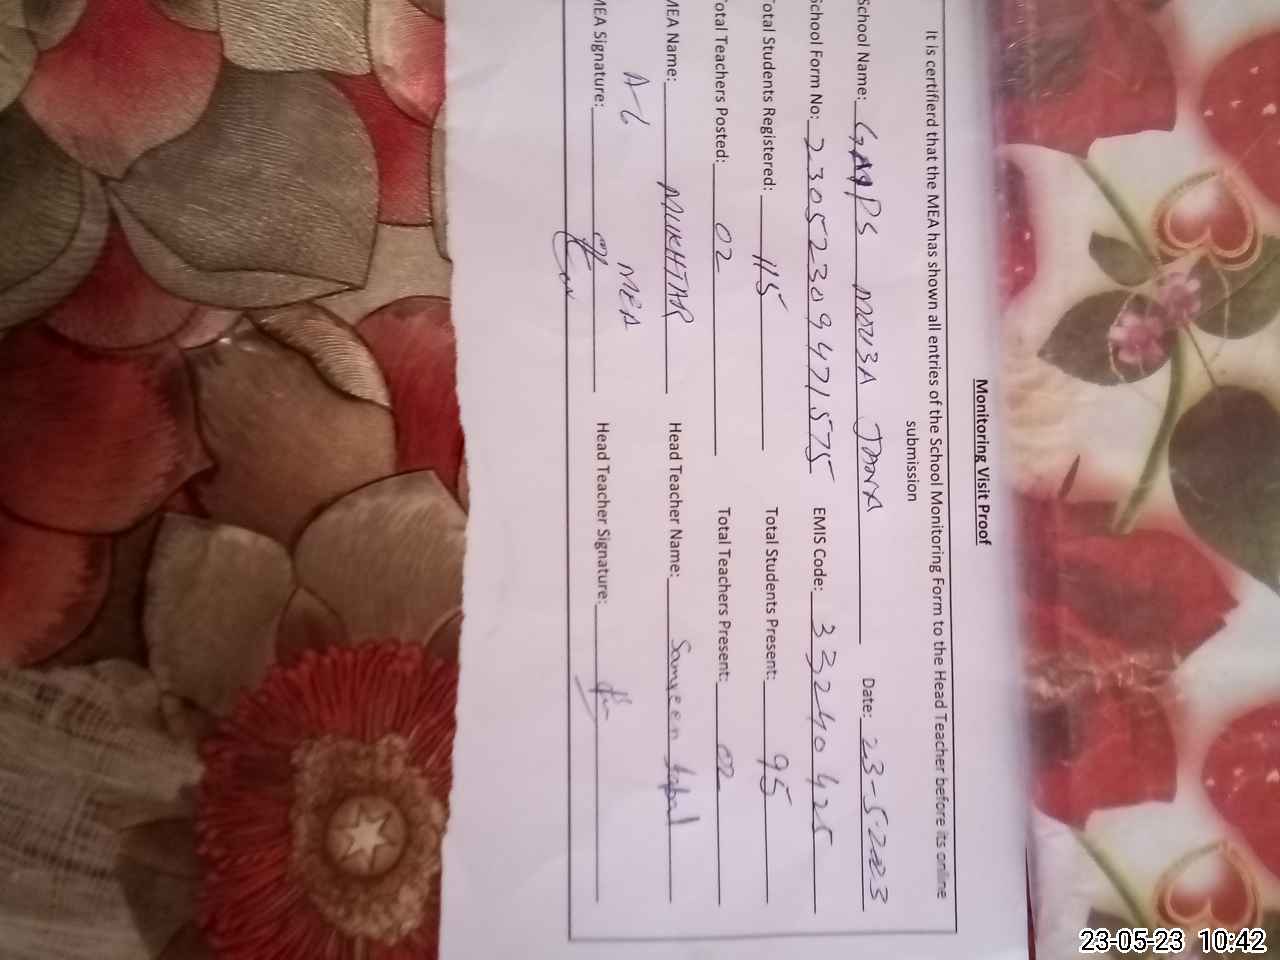 Monitoring Visit Proof
It is certifierd that the MEA has shown all entries of the School Monitoring Form to the Head Teacher before its online
submission
School Name: GMPS MOUZA JANNA Date: 23-5-2023
School Form No: 23052309471575 EMIS Code: 33240425
Total Students Registered: 115 Total Students Present: 95
Total Teachers Posted: 02 Total Teachers Present: 02
MEA Name: MUKHTAR Head Teacher Name: Samreen Iqbal
MEA
MEA Signature: Head Teacher Signature:
23-05-23 10:42